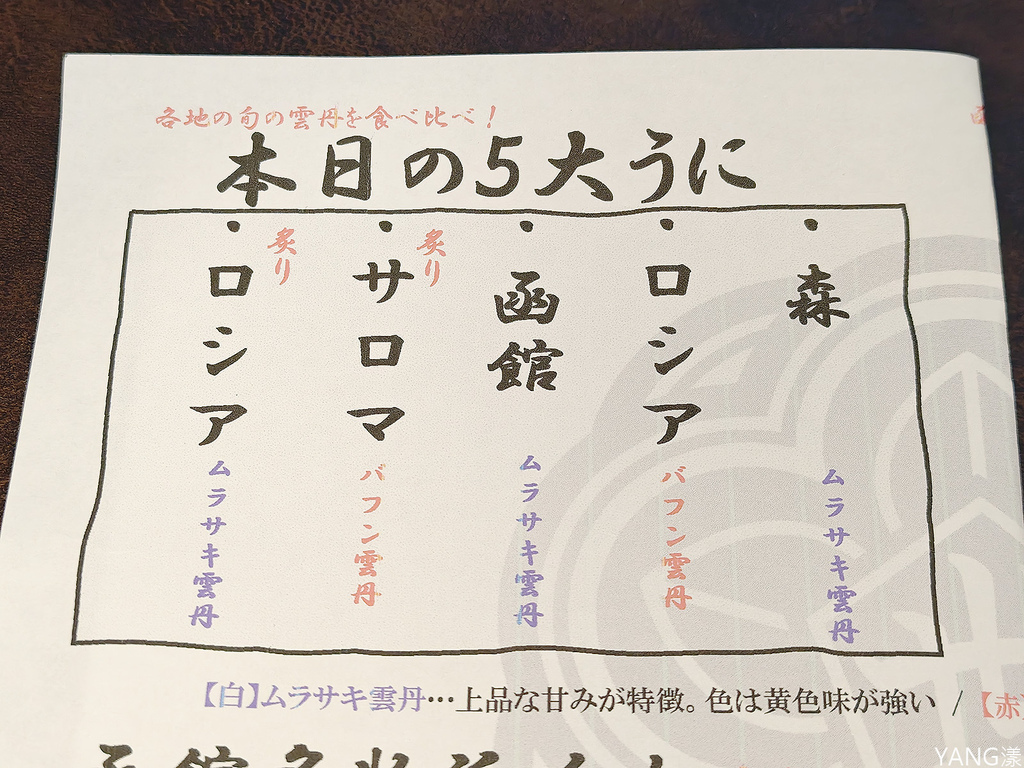 各地の旬の雲丹を食べ比べ！
本日の5大うに
・森
ムラサキ雲丹
・ロシア
バフン雲丹
・函館
ムラサキ雲丹
炙り
・サロマ
バフン雲丹
炙り
・ロシア
ムラサキ雲丹
【白】ムラサキ雲丹…上品な甘みが特徴。色は黄色味が強い / 【赤
YANG漾